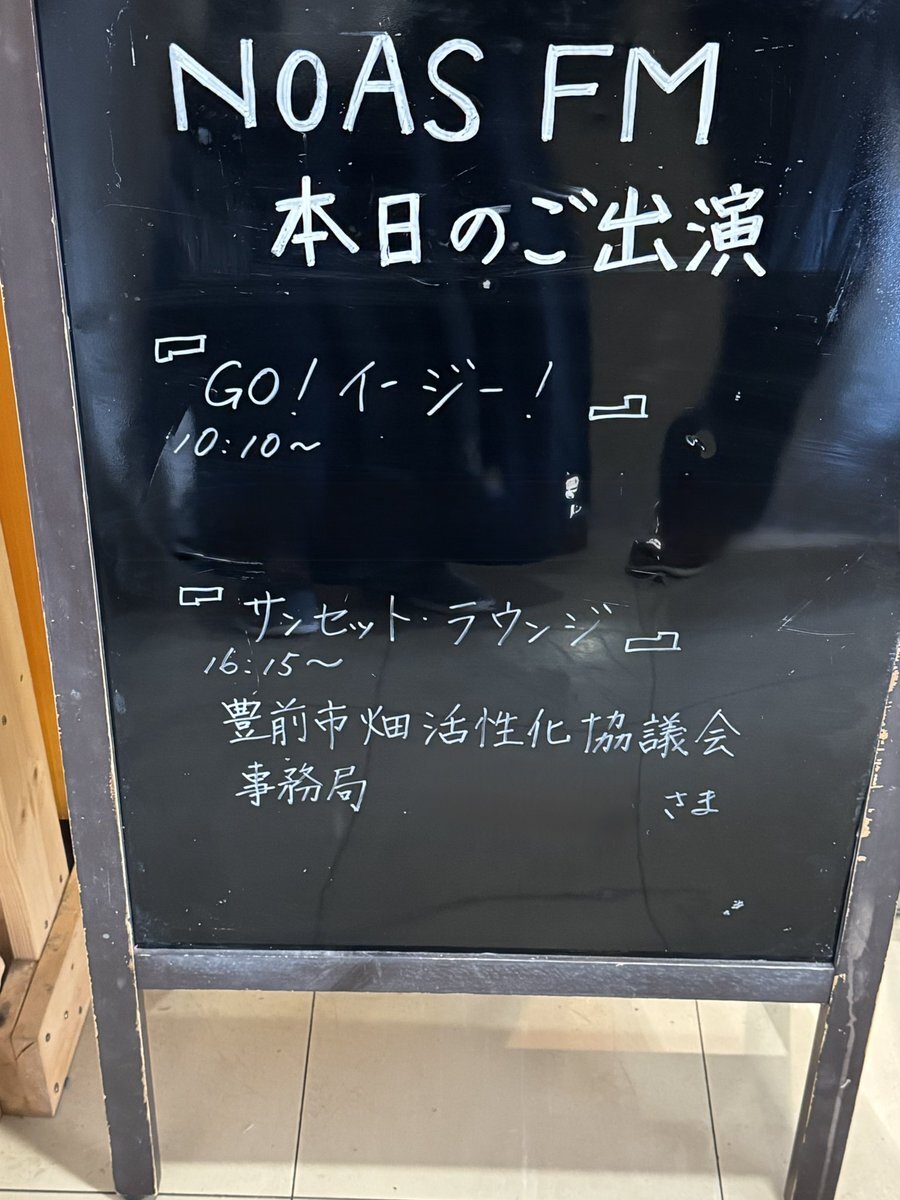 NOAS FM
本日のご出演
『GO！イージー！』
10:10～
『サンセット・ラウンジ』
16:15～
豊前市畑活性化協議会
事務局 さま